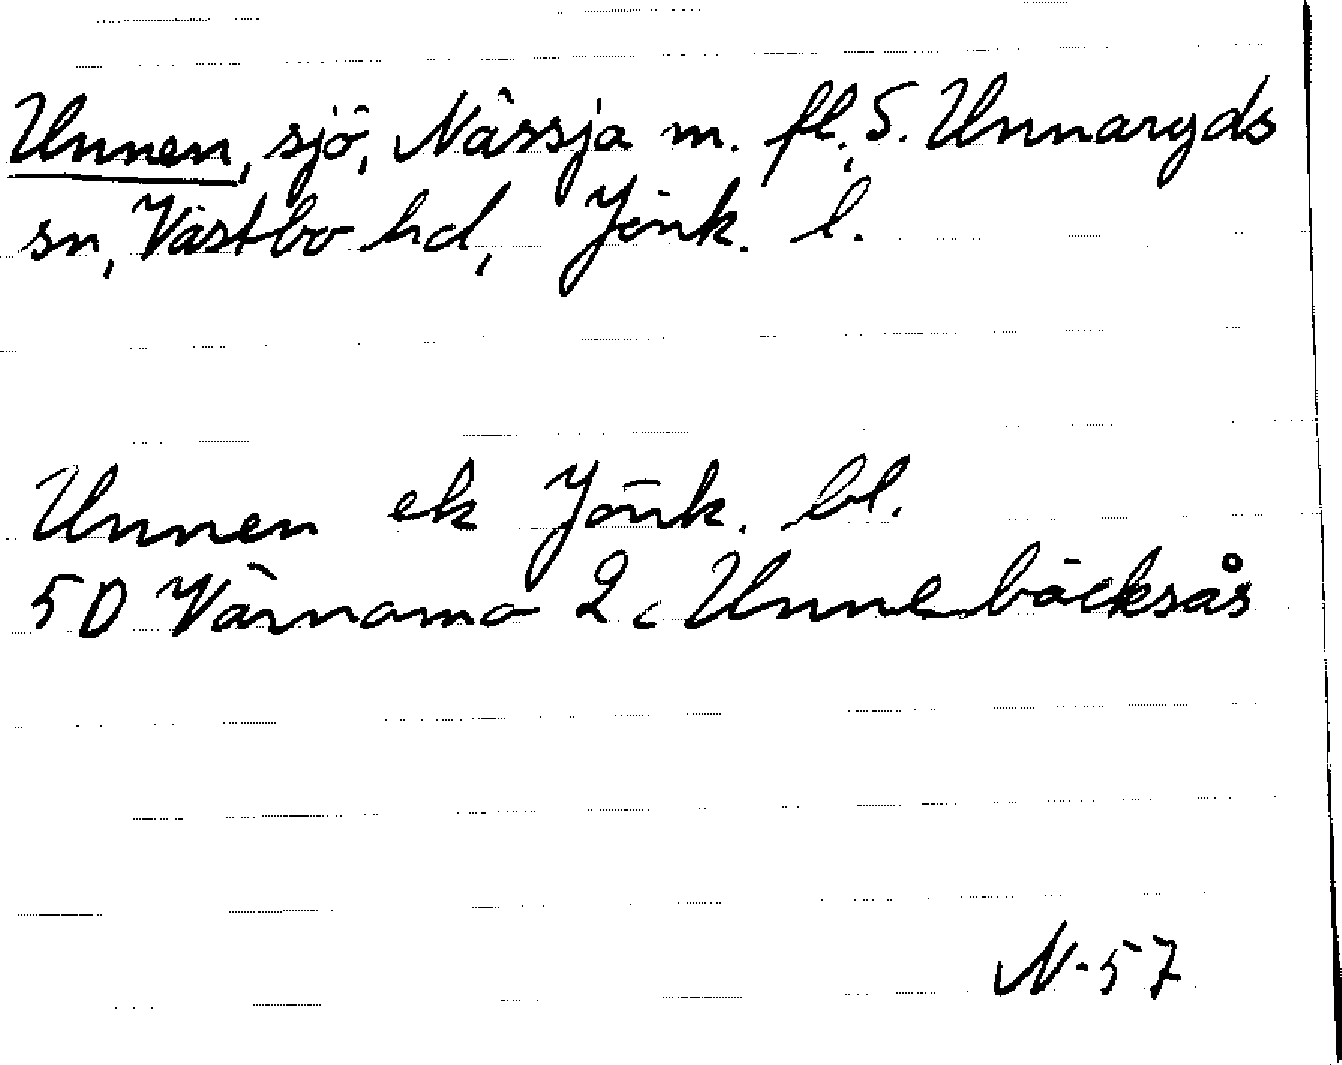 Unnen, sjö, Nässja m. fl., S. Unnaryds
sn, Västbo hd, Jönk. l.
Unnen ek Jönk. bl.
5D Värnamo 2c Unnebäcksås
N-57